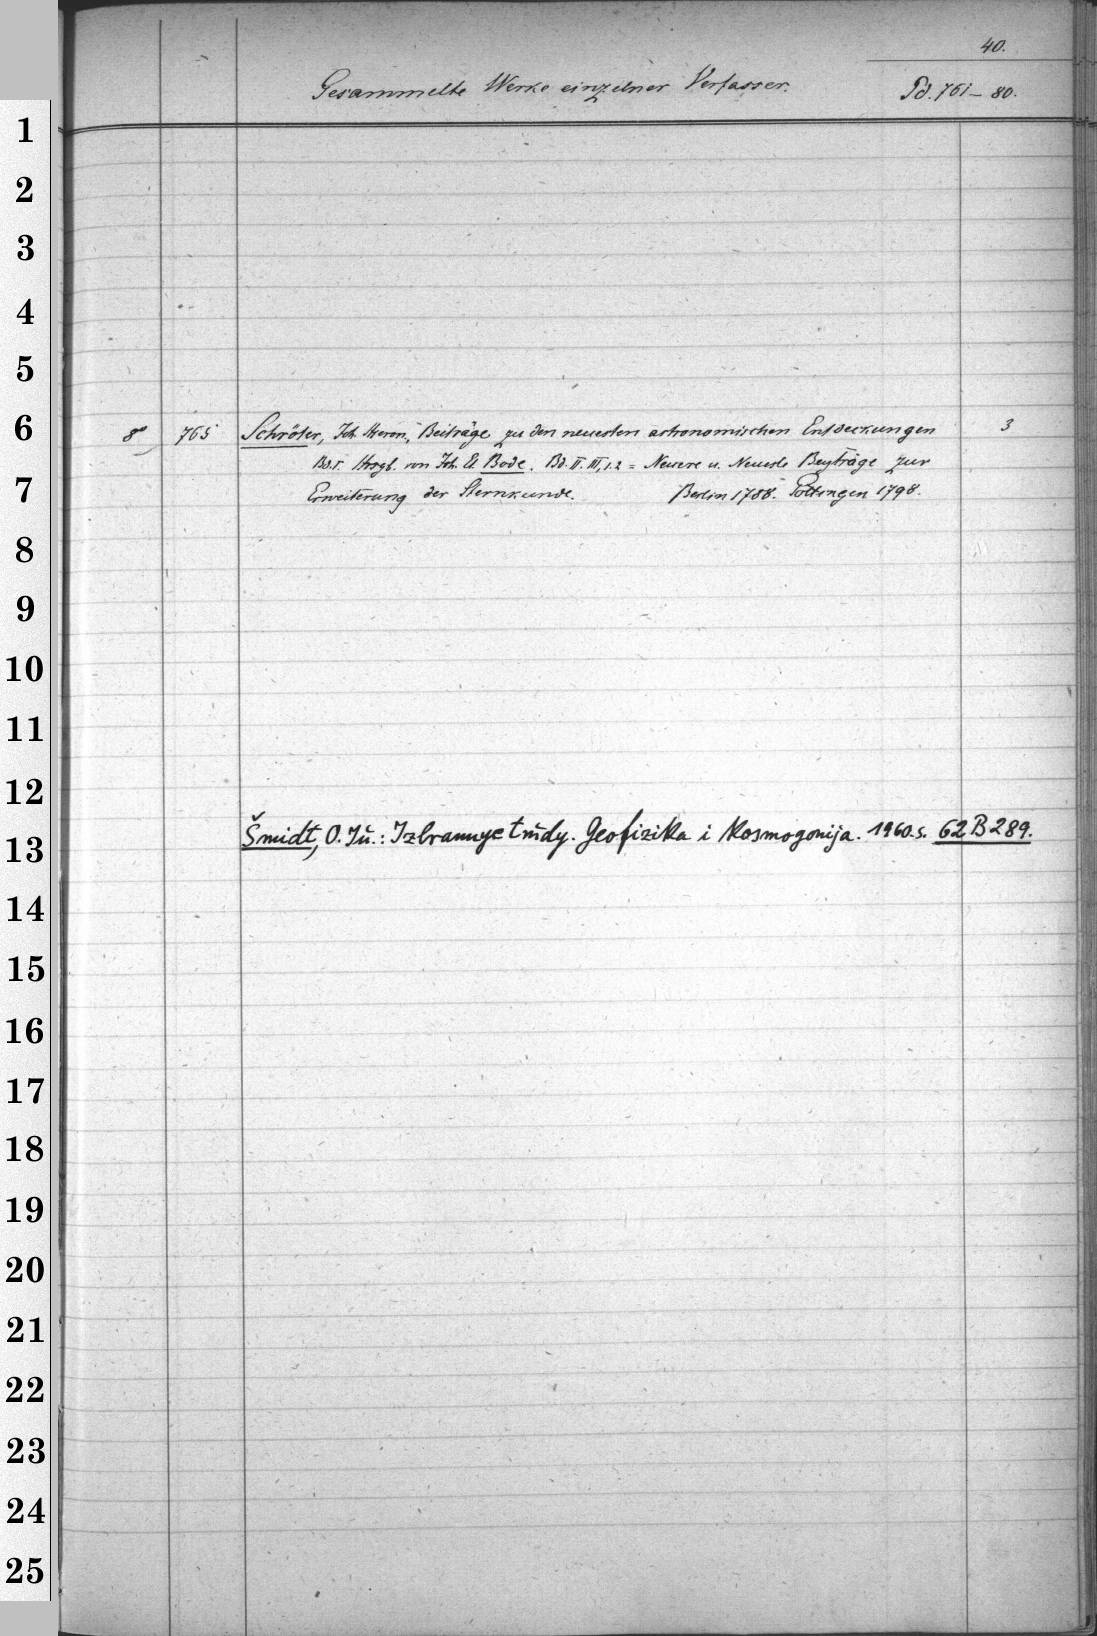 40.
Gesammelte Werke einzelner Verfasser. Pd. 761–80.
1
2
3
4
5
6
8° 765 Schröter, Joh. Hieron., Beiträge zu den neuesten astronomischen Entdeckungen 3
Bd. I. Hrsgb. von Joh. El. Bode. Bd. II. III,1.2 = Neuere u. Neueste Beyträge zur
7
Erweiterung der Sternkunde. Berlin 1788. Göttingen 1798.
8
9
10
11
12
13
Šmidt, O. Jŭ.: Izbrannye trudy. Geofizika i Kosmogonija. 1960. s. 62 B 289.
14
15
16
17
18
19
20
21
22
23
24
25